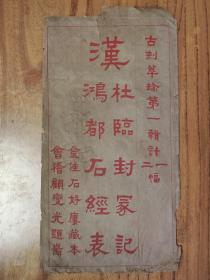 古刻萃珍第一輯計二幅
漢
杜臨封冢記
鴻都石經表
金佳石好廔藏本
會稽顧燮光題耑